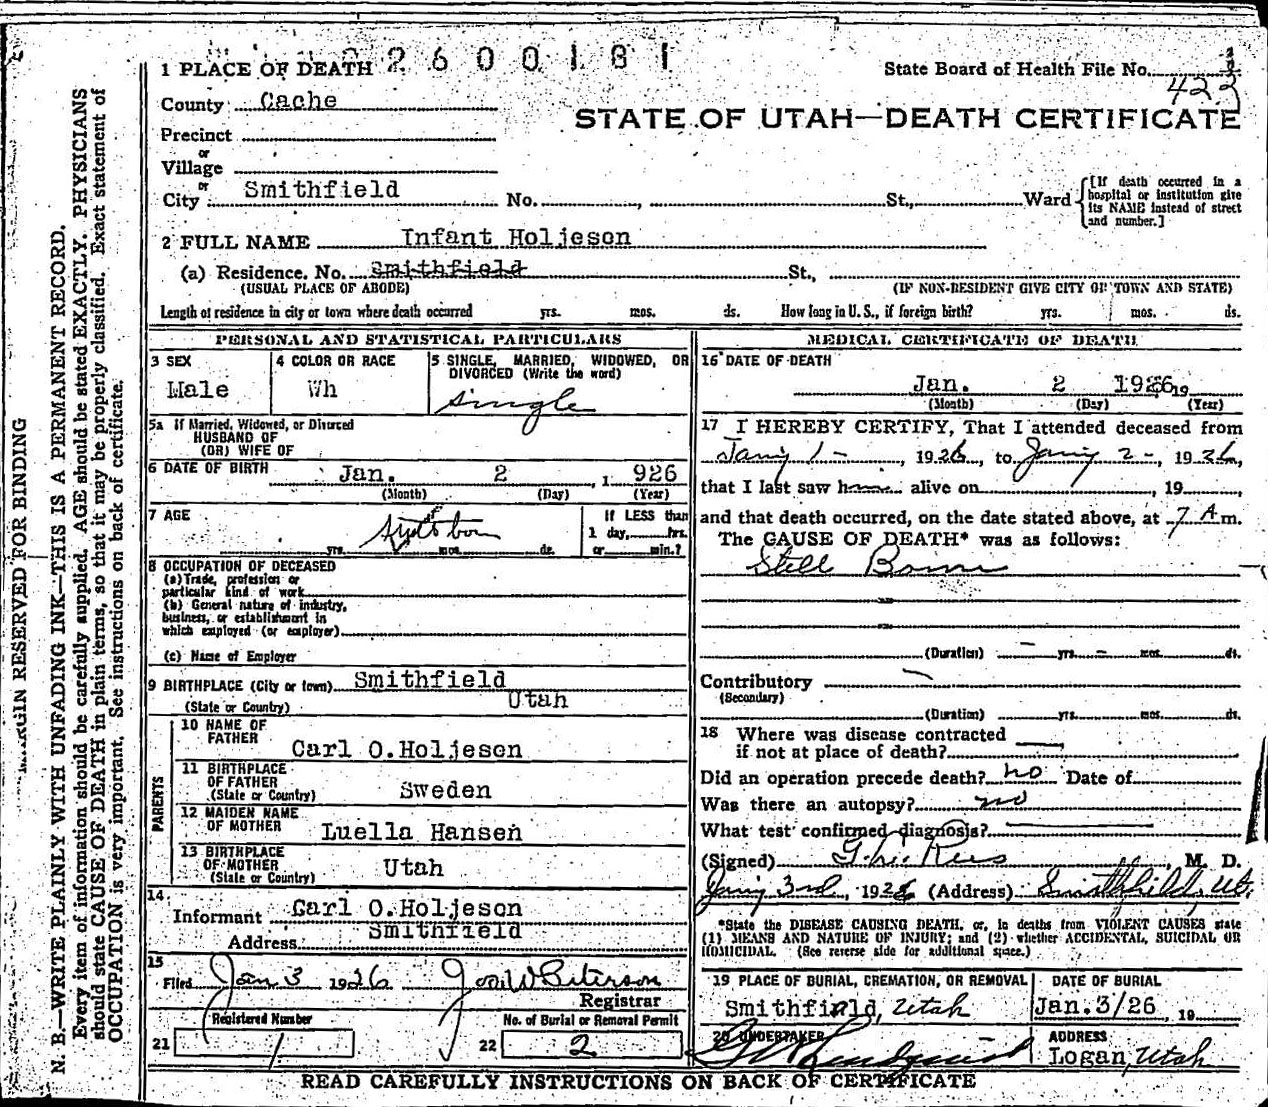 2600181
1 PLACE OF DEATH
State Board of Health File No.
423
County Cache
STATE OF UTAH—DEATH CERTIFICATE
Precinct
or
Village
or
City Smithfield No. , St., Ward
[If death occurred in a hospital or institution give its NAME instead of street and number.]
2 FULL NAME Infant Holjeson
(a) Residence. No. Smithfield St.,
(USUAL PLACE OF ABODE) (IF NON-RESIDENT GIVE CITY OR TOWN AND STATE)
Length of residence in city or town where death occurred yrs. mos. ds. How long in U. S., if foreign birth? yrs. mos. ds.
PERSONAL AND STATISTICAL PARTICULARS
3 SEX
Male
4 COLOR OR RACE
Wh
5 SINGLE, MARRIED, WIDOWED, OR
DIVORCED (Write the word)
single
5a If Married, Widowed, or Divorced
HUSBAND OF
(OR) WIFE OF
6 DATE OF BIRTH Jan. 2 , 1 926
(Month) (Day) (Year)
7 AGE
yrs. mos. ds.
If LESS than
1 day, hrs.
or min.?
8 OCCUPATION OF DECEASED
(a) Trade, profession or
particular kind of work
(b) General nature of industry,
business, or establishment in
which employed (or employer)
(c) Name of Employer
9 BIRTHPLACE (City or town) Smithfield
(State or Country) Utah
PARENTS
10 NAME OF
FATHER
Carl O.Holjeson
11 BIRTHPLACE
OF FATHER
(State or Country) Sweden
12 MAIDEN NAME
OF MOTHER Luella Hansen
13 BIRTHPLACE
OF MOTHER
(State or Country) Utah
14
Informant Carl O.Holjeson
Address Smithfield
15
Filed Jan 3 1926 Jos W Peterson
Registrar
Registered Number
21 1
No. of Burial or Removal Permit
22 2
MEDICAL CERTIFICATE OF DEATH
16 DATE OF DEATH
Jan. 2 1926 19
(Month) (Day) (Year)
17 I HEREBY CERTIFY, That I attended deceased from
Jany 1 - , 1926, to Jany 2 - , 1926,
that I last saw h alive on , 19 ,
and that death occurred, on the date stated above, at 7 A m.
The CAUSE OF DEATH* was as follows:
Still Born
(Duration) yrs. mos. ds.
Contributory
(Secondary)
(Duration) yrs. mos. ds.
18 Where was disease contracted
if not at place of death?
Did an operation precede death? no Date of
Was there an autopsy? no
What test confirmed diagnosis?
(Signed) Rees , M. D.
Jany 3rd, 1926 (Address) Smithfield, Ut.
*State the DISEASE CAUSING DEATH, or, in deaths from VIOLENT CAUSES state
(1) MEANS AND NATURE OF INJURY; and (2) whether ACCIDENTAL, SUICIDAL OR
HOMICIDAL. (See reverse side for additional space.)
19 PLACE OF BURIAL, CREMATION, OR REMOVAL
Smithfield, Utah
DATE OF BURIAL
Jan.3/26 , 19
20 UNDERTAKER
Lindquist
ADDRESS
Logan, Utah
READ CAREFULLY INSTRUCTIONS ON BACK OF CERTIFICATE
MARGIN RESERVED FOR BINDING
N. B.—WRITE PLAINLY WITH UNFADING INK—THIS IS A PERMANENT RECORD.
Every item of information should be carefully supplied. AGE should be stated EXACTLY. PHYSICIANS
should state CAUSE OF DEATH in plain terms, so that it may be properly classified. Exact statement of
OCCUPATION is very important. See instructions on back of certificate.